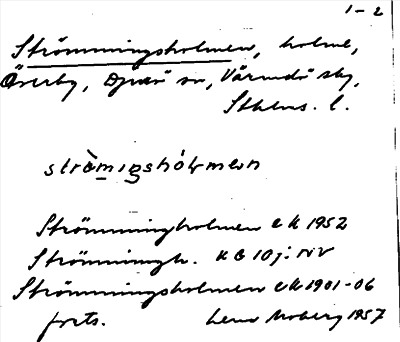 1-2
Strömmingsholmen, holme,
Överby, Djurö sn, Värmdö skg,
Sthlms. l.
stràmigshólmen
Strömmingholmen EK 1952
Strömmingh. KB 10 j: NV
Strömmingsholmen EK 1901-06
forts. Lena Moberg 1957